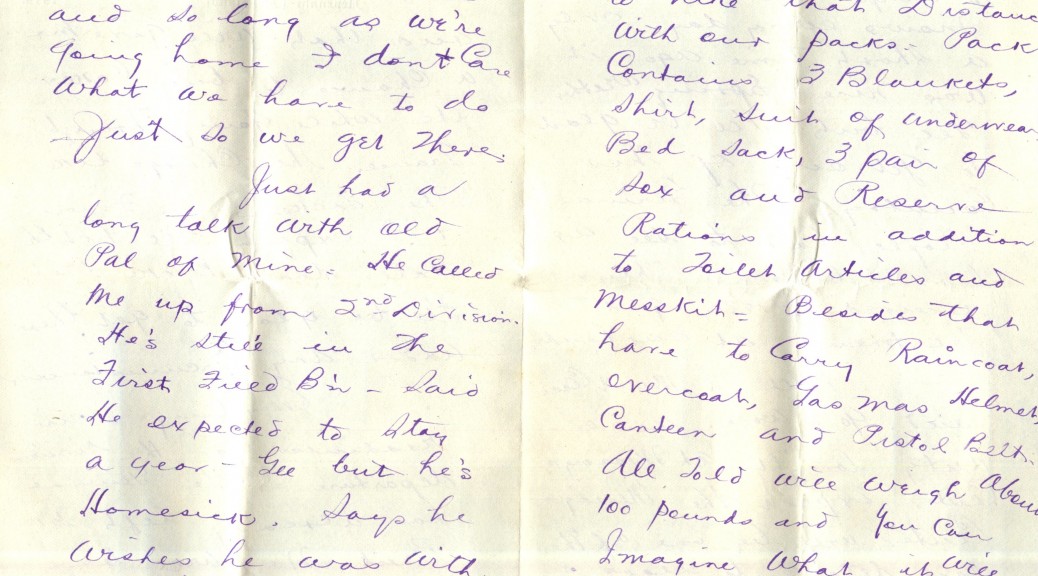 and so long as we're
going home I don't Care
What we have to do
Just so we get there.
Just had a
long talk with old
Pal of mine. He Called
me up from 2nd Division.
He's still in the
First Field B'n - Said
He expected to stay
a year - Gee but he's
Homesick. Says he
wishes he was with
to hike that Distanc
with our packs. Pack
Contains 3 Blankets,
Shirt, suit of underwear
Bed sack, 3 pair of
sox and Reserve
Rations in addition
to Toilet Articles and
Messkit = Besides that
have to Carry Raincoat,
overcoat, Gas mas Helmet
Canteen and Pistol Belt.
All Told will weigh Abou
100 pounds and you Can
Imagine What it will